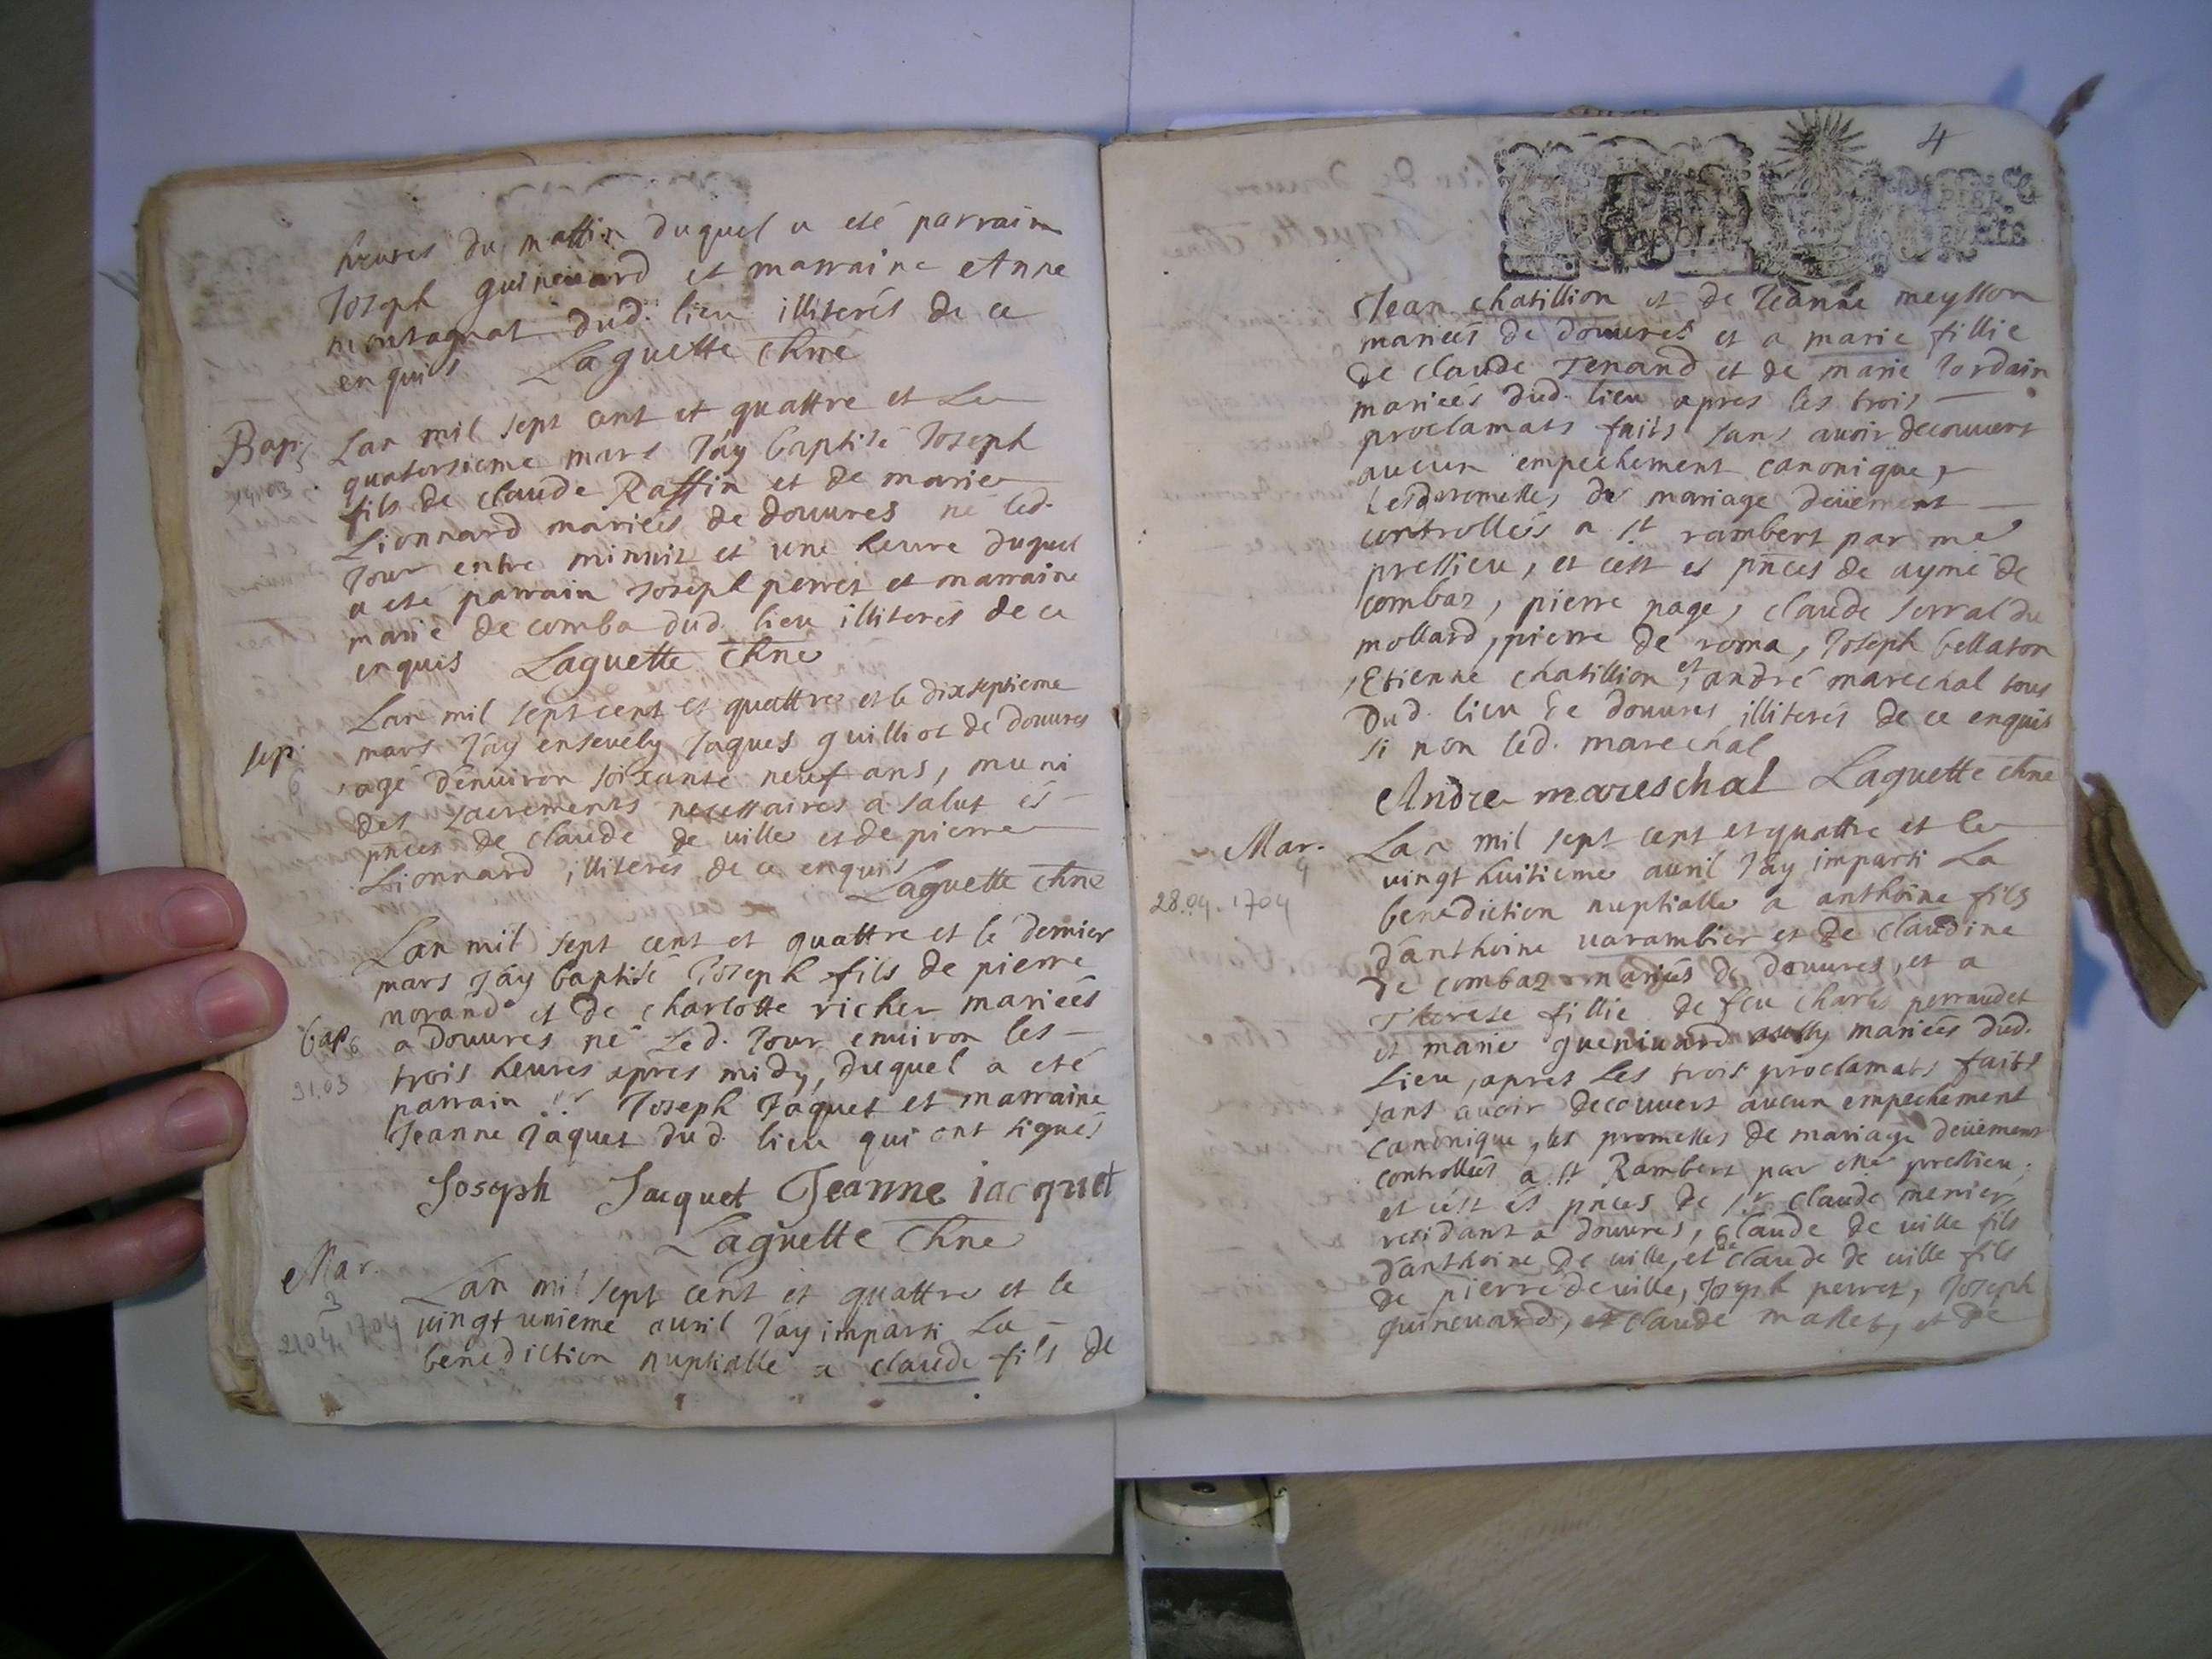 heures du mattin duquel a eté parrain
Joseph guinevard et marraine Anne
montagnat dud. lieu illiterés de ce
enquis Laguette Chne
Bap. Lan mil sept cent et quattre et Le
quatorsieme mars J'ay baptisé Joseph
fils de claude Raffin et de marie
Lionnard mariées de douures né led.
Jour entre minuit et une heure duquel
a eté parrain Joseph perret et marraine
marie de comba dud. lieu illiterés de ce
enquis Laguette Chne
Lan mil sept cent et quattre et le dixseptieme
sep. mars J'ay ensevely Jaques guilliot de douures
agé d'environ soixante neuf ans, muni
des sacrements necessaires a salut és
pnces de claude de ville et de pierre
Lionnard illiterés de ce enquis
Laguette Chne
Lan mil sept cent et quattre et le dernier
mars J'ay baptisé Joseph fils de pierre
morand et de charlotte richer mariées
bap. 6 a Douures né Led. Jour environ les
31.03 trois heures apres midy, duquel a eté
parrain Sr Joseph Jaquet et marraine
Jeanne Jaquet dud. lieu qui ont signés
Joseph Jacquet Jeanne iacquet
Laguette Chne
Mar. Lan mil sept cent et quattre et le
3 vingt unieme avril J'ay imparti La
21.04.1704 benediction nuptialle a claude fils de
4
Jean chatillion et de Jeanne meysson
mariées de douures et a marie fillie
de claude Tenand et de marie Jordain
mariées dud. lieu apres les trois
proclamats faits sans avoir decouvert
aucun empechement canonique,
les promesses de mariage deüement
controllées a St rambert par me
pressieu, et cest és pnces de aymé de
combaz, pierre page, claude serral du
mollard, pierre de roma, Joseph bellaton
Etienne chatillion, et andré marechal tous
dud. lieu de douures illiterés de ce enquis
si non led. marechal
Andre mareschal Laguette Chne
Mar. Lan mil sept cent et quattre et le
4 vingt huitieme avril J'ay imparti La
28.04.1704 benediction nuptialle a anthoine fils
d'anthoine varambier et de claudine
de combaz mariés de douures, et a
Therese fillie de feu charles perraudet
et marie guenivard mariées dud.
Lieu, apres Les trois proclamats faits
sans avoir decouvert aucun empechement
canonique, les promesses de mariage deüement
controllées a St Rambert par me pressieu;
et cést és pnces de Sr claude menier
residant a douures, claude de ville fils
d'anthoine de ville, et de claude de ville fils
de pierre de ville, Joseph perret, Joseph
guinevard, et claude mallet, et de